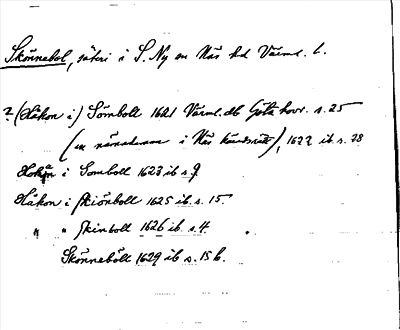 Skönnebol, säteri i S. Ny sn Näs hd Värml. l.
? (Håkon i) Sömboll 1621 Värml. db Göta hovr. s. 25
(en nämndeman i Näs häradsrätt), 1622 ib s. 28
Hokan i Somboll 1623 ib s. 9
Håkon i Skiönboll 1625 ib. s. 15.
" " Skinboll 1626 ib. s. 4.
Skönneböll 1629 ib s. 15 b.